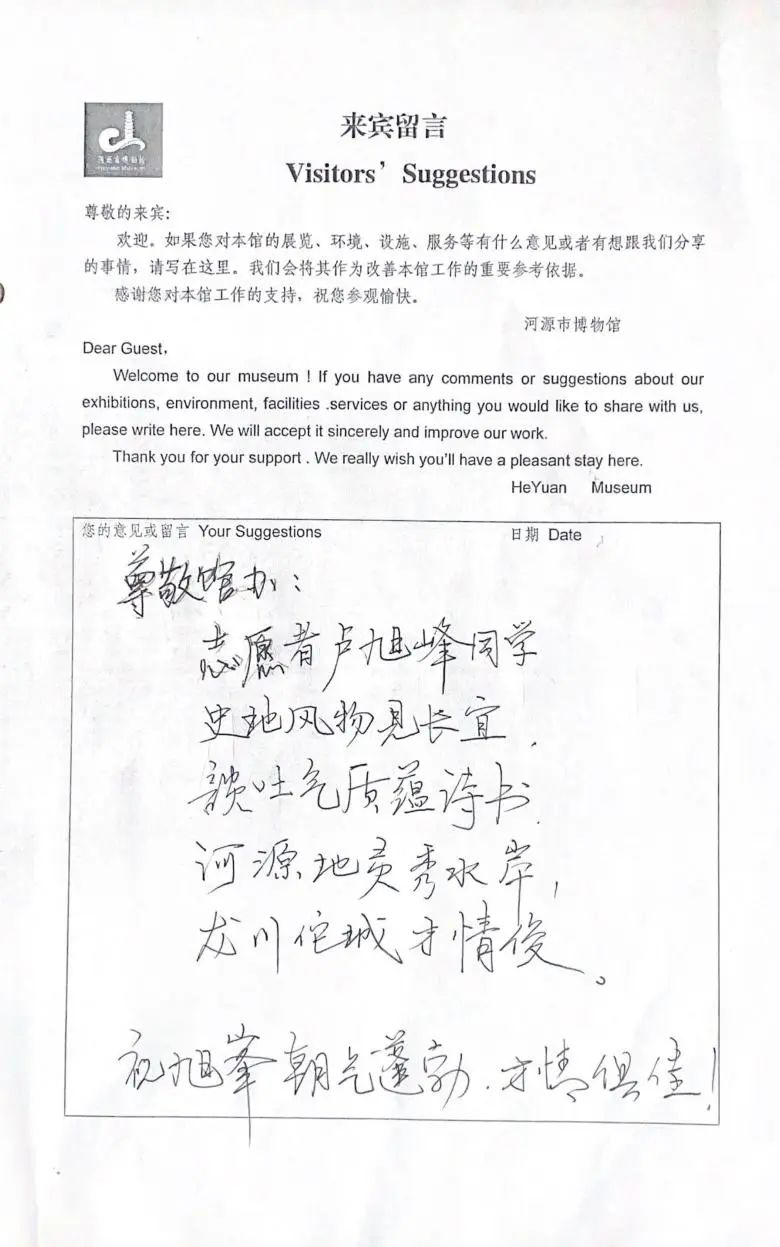 河源市博物馆
Heyuan Museum
来宾留言
Visitors’ Suggestions
尊敬的来宾:
欢迎。如果您对本馆的展览、环境、设施、服务等有什么意见或者有想跟我们分享
的事情，请写在这里。我们会将其作为改善本馆工作的重要参考依据。
感谢您对本馆工作的支持，祝您参观愉快。
河源市博物馆
Dear Guest,
Welcome to our museum ! If you have any comments or suggestions about our
exhibitions, environment, facilities .services or anything you would like to share with us,
please write here. We will accept it sincerely and improve our work.
Thank you for your support . We really wish you'll have a pleasant stay here.
HeYuan Museum
您的意见或留言 Your Suggestions 日期 Date
尊敬馆办：
志愿者卢旭峰同学
史地风物见长宜，
談吐气质蕴诗书.
河源地灵秀水岸，
龙川佗城才情俊。
祝旭峯朝气蓬勃.才情俱佳！